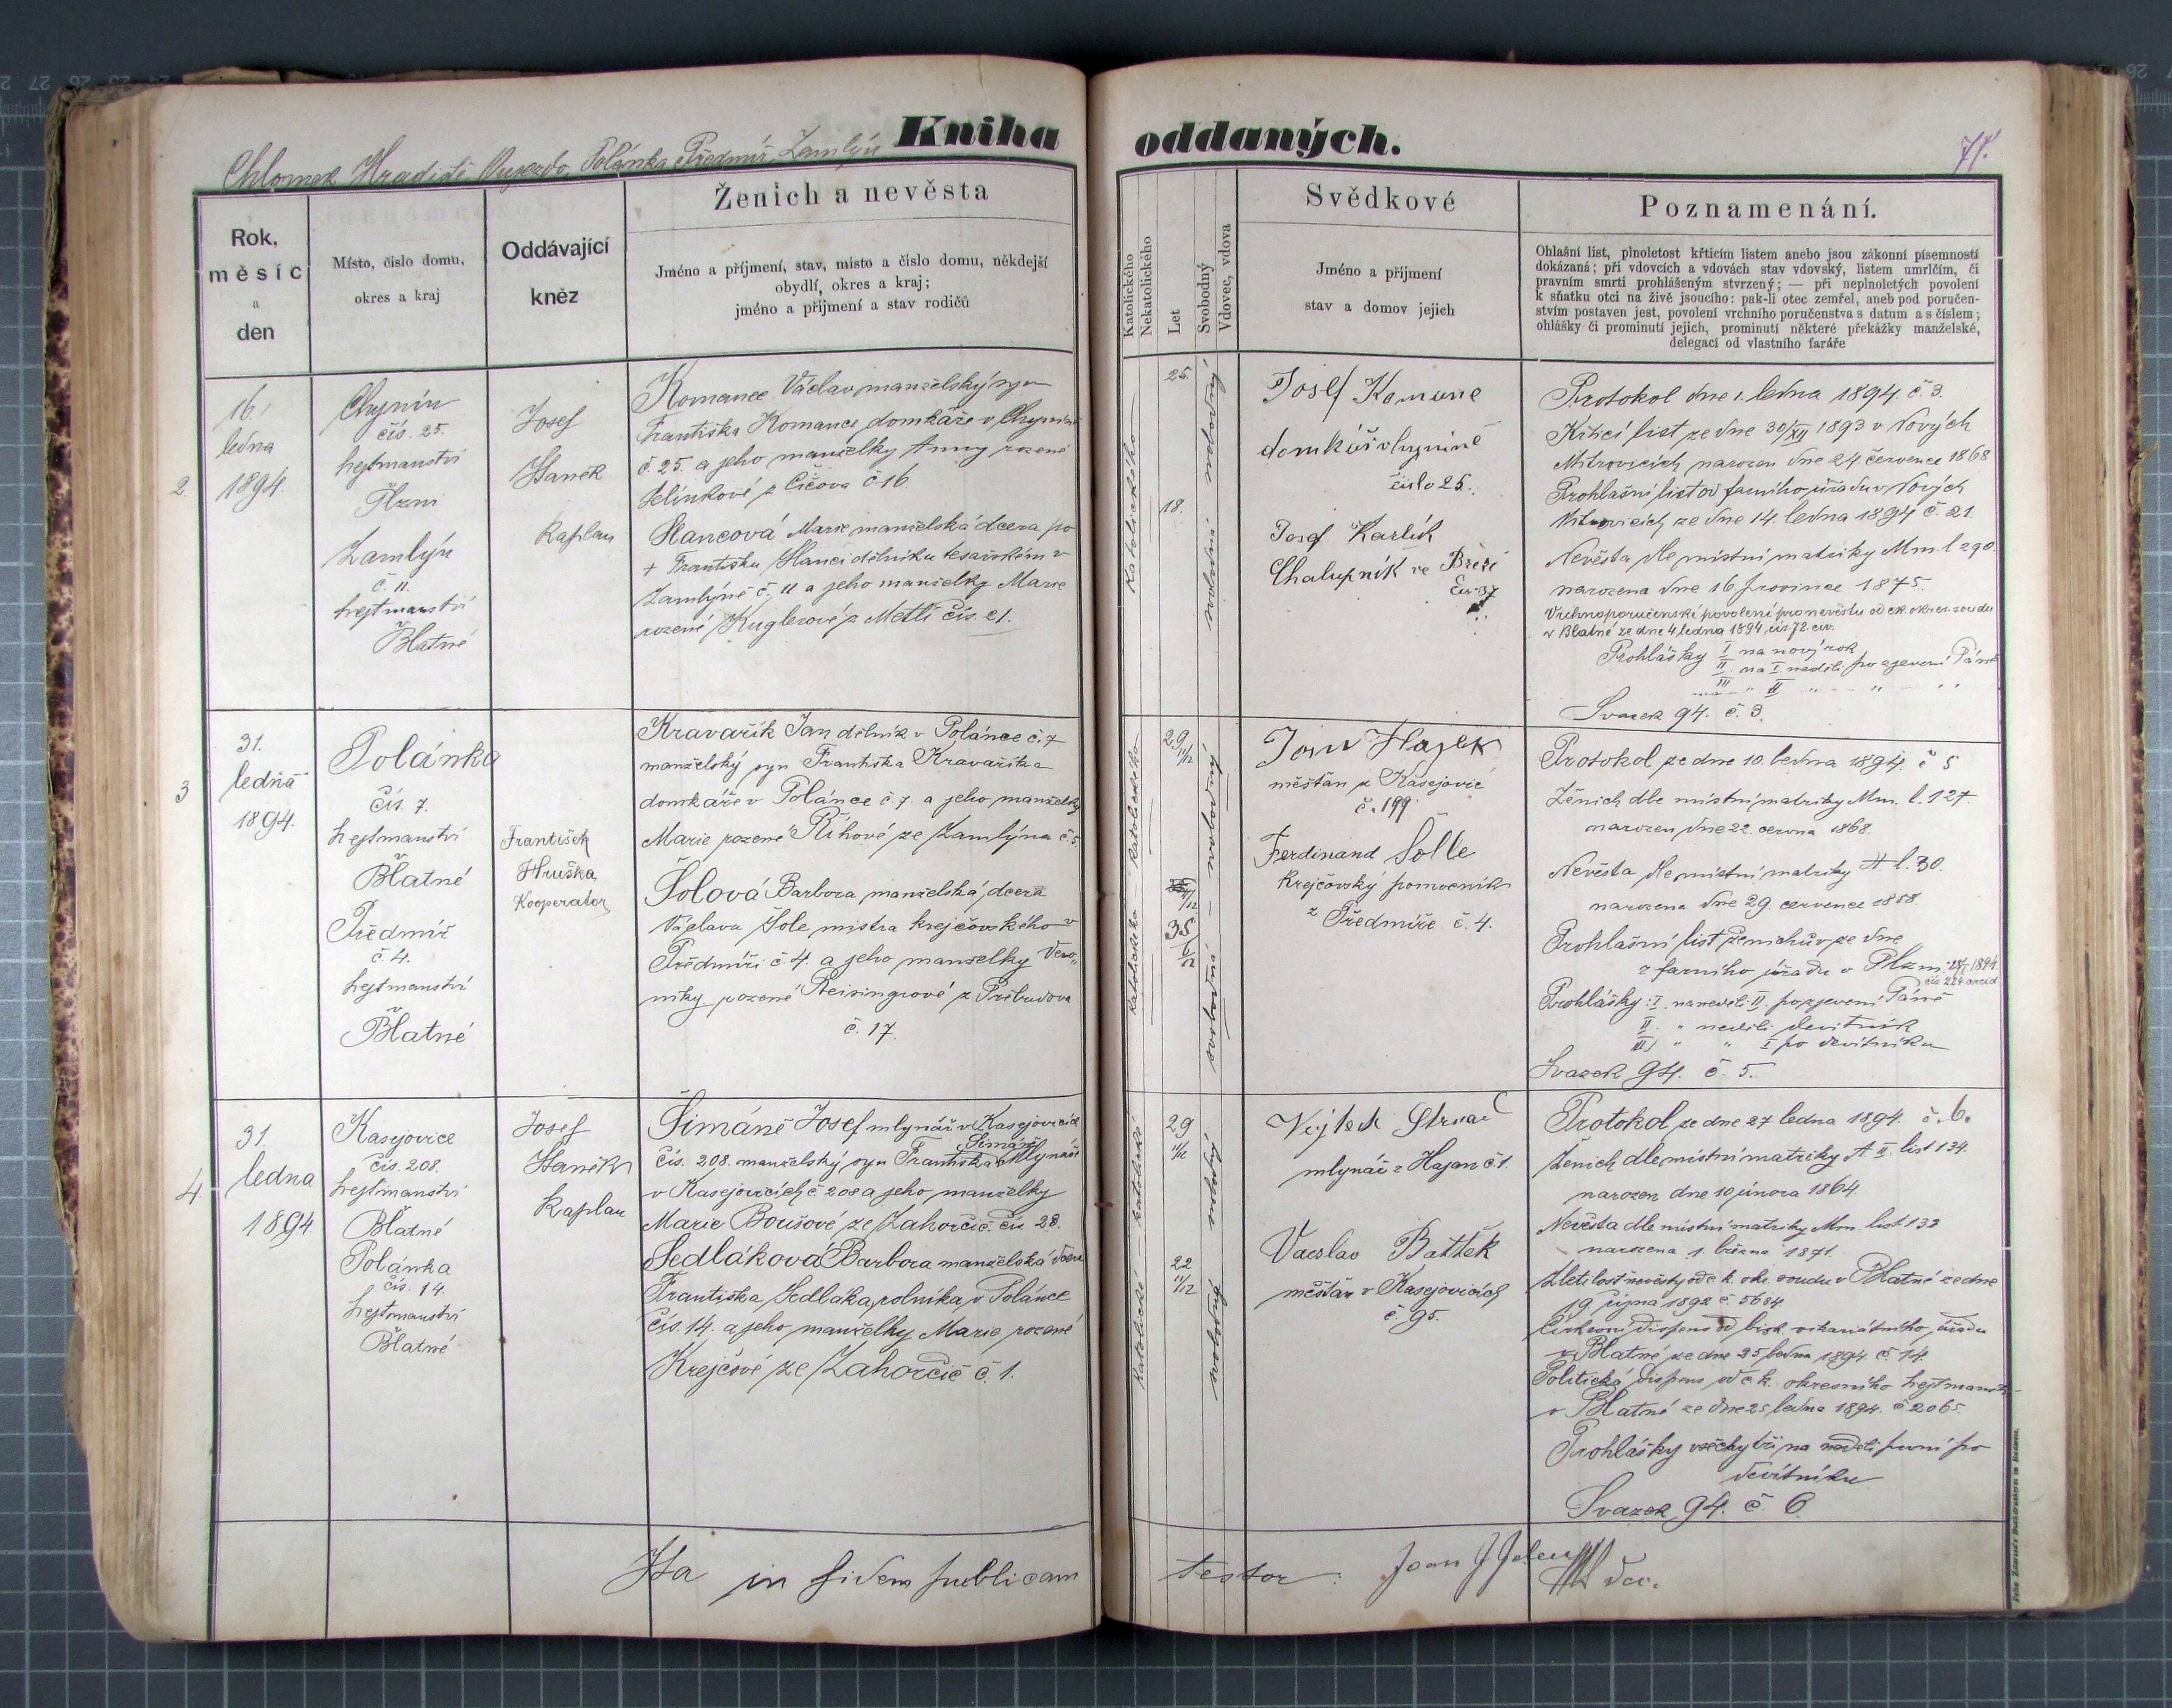 Kniha oddaných.
Chlomek Hradiště Oujezdo Polánka Předmíř Zamlýn
71.
Rok,
měsíc
a
den
Místo, číslo domu,
okres a kraj
Oddávající
kněz
Ženich a nevěsta
Jméno a příjmení, stav, místo a číslo domu, někdejší
obydlí, okres a kraj;
jméno a příjmení a stav rodičů
Katolického
Nekatolického
Let
Svobodný
Vdovec, vdova
Svědkové
Jméno a příjmení
stav a domov jejich
Poznamenání.
Ohlašní list, plnoletost křticím listem anebo jsou zákonní písemností
dokázaná; při vdovcích a vdovách stav vdovský, listem umrlčím, či
pravním smrti prohlášeným stvrzený; — při neplnoletých povolení
k sňatku otci na živě jsoucího: pak-li otec zemřel, aneb pod poručen-
stvím postaven jest, povolení vrchního poručenstva s datum a s číslem;
ohlášky či prominutí jejich, prominutí některé překážky manželské,
delegací od vlastního faráře
2.
16.
ledna
1894.
Chynín
čís. 25.
hejtmanství
Plzni
Zamlýn
č. 11.
hejtmanství
Blatné
Josef
Staněk
Kaplan
Komanec Václav, manželský syn
Františka Komance, domkáře v Chyníně
č. 25. a jeho manželky Anny rozené
Jelínkové z Číčova č. 16.
Hancová Marie manželská dcera po
+ Františku Hanci dělníku tesařském v
Zamlýně č. 11 a jeho manželky Marie
rozené Kuglerové z Metlí čís. 21.
katolického
25.
18.
svobodný
svobodná
Josef Komanc
domkář v Chynině
číslo 25.
Josef Karlík
Chalupník ve Březí
Čís. 37
Protokol dne 1. ledna 1894. č. 3.
Křticí list ze dne 30/XII 1893 v Nových
Mitrovicích narozen dne 24. července 1868
Prohlašní list od farního úřadu v Nových
Mitrovicích ze dne 14. ledna 1894 č. 21.
Nevěsta dle místní matriky Mm l 290.
narozena dne 16 prosince 1875.
Vrchnoporučenské povolení pro nevěstu od ck. okres. soudu
v Blatné ze dne 4 ledna 1894, čís. 72. civ.
Prohlášky I na nový rok
II. na I neděli po zjevení Páně
III " " II " " "
Svazek 94. č. 3.
3
31.
ledna
1894.
Polánka
čís. 7.
hejtmanství
Blatné
Předmíř
č. 4.
hejtmanství
Blatné
František
Hruška,
Kooperator
Kravařík Jan dělník v Polánce č. 7
manželský syn Františka Kravaříka
domkáře v Polánce č. 7. a jeho manželky
Marie rozené Říhové ze Zamlýna č. 5.
Šolová Barbora, manželská dcera
Václava Šole, mistra krejčovského v
Předmíři č. 4. a jeho manželky Vero„
niky rozené Reisingrové z Přebudova
č. 17.
katolického — katolického
29
35
6/12
svobodná — svobodný
Jan Hajek
měšťan z Kasejovic
č. 199
Ferdinand Šolle
Krejčovský pomocník
z Předmíře č. 4.
Protokol ze dne 10. ledna 1894. č 5
Ženich dle místní matriky Mm. l. 127.
narozen dne 22. června 1868.
Nevěsta dle místní matriky A l. 30.
narozena dne 29. července 1858.
Prohlašní list ženichův ze dne
z farního úřadu v Plzni 1894.
čís. 224 arcid
Prohlášky: I. na neděli II. po zjevení Páně
II. " neděli devítník
III) " " I po devítníku
Svazek 94. č. 5.
4.
31.
ledna
1894.
Kasejovice
čís. 208.
hejtmanství
Blatné
Polánka
čís. 14
hejtmanství
Blatné
Josef
Staněk
Kaplan
Šimáně Josef mlynář v Kasejovicích
Šimáně
čís. 208. manželský syn Františka Mlynáře
v Kasejovicích č 208 a jeho manželky
Marie Boušové ze Zahorčic čís 28.
Sedláková Barbora manželská dcera
Františka Sedlaka, rolníka v Polánce
čís. 14. a jeho manželky Marie rozené
Krejčové ze Zahorčic č. 1.
katolické — katolické
29
11/12
22
11/12
svobodný
svobodný
Vojtěch Strnad
mlynář z Hajan č. 1.
Vacslav Battěk
měšťan v Kasejovicích
č. 95.
Protokol ze dne 27 ledna 1894. č. 6.
Ženich dle místní matriky A II. list 134.
narozen dne 10 února 1864
Nevěsta dle místní matriky Mm. list 132
narozena 1. března 1871.
Zletilost nevěsty od c. k. okr. soudu v Blatné ze dne
19 října 1892 č. 5684.
Církevní dispens od bisk. vikariátního úřadu
v Blatné ze dne 25 ledna 1894. č. 14.
Politická dispens od c. k. okresního hejtmanství
v Blatné ze dne 25 ledna 1894. č. 2065.
Prohlášky všechy tři na neděli první po
devítníku
Svazek 94. č 6.
Ita in fidem publicam testor: